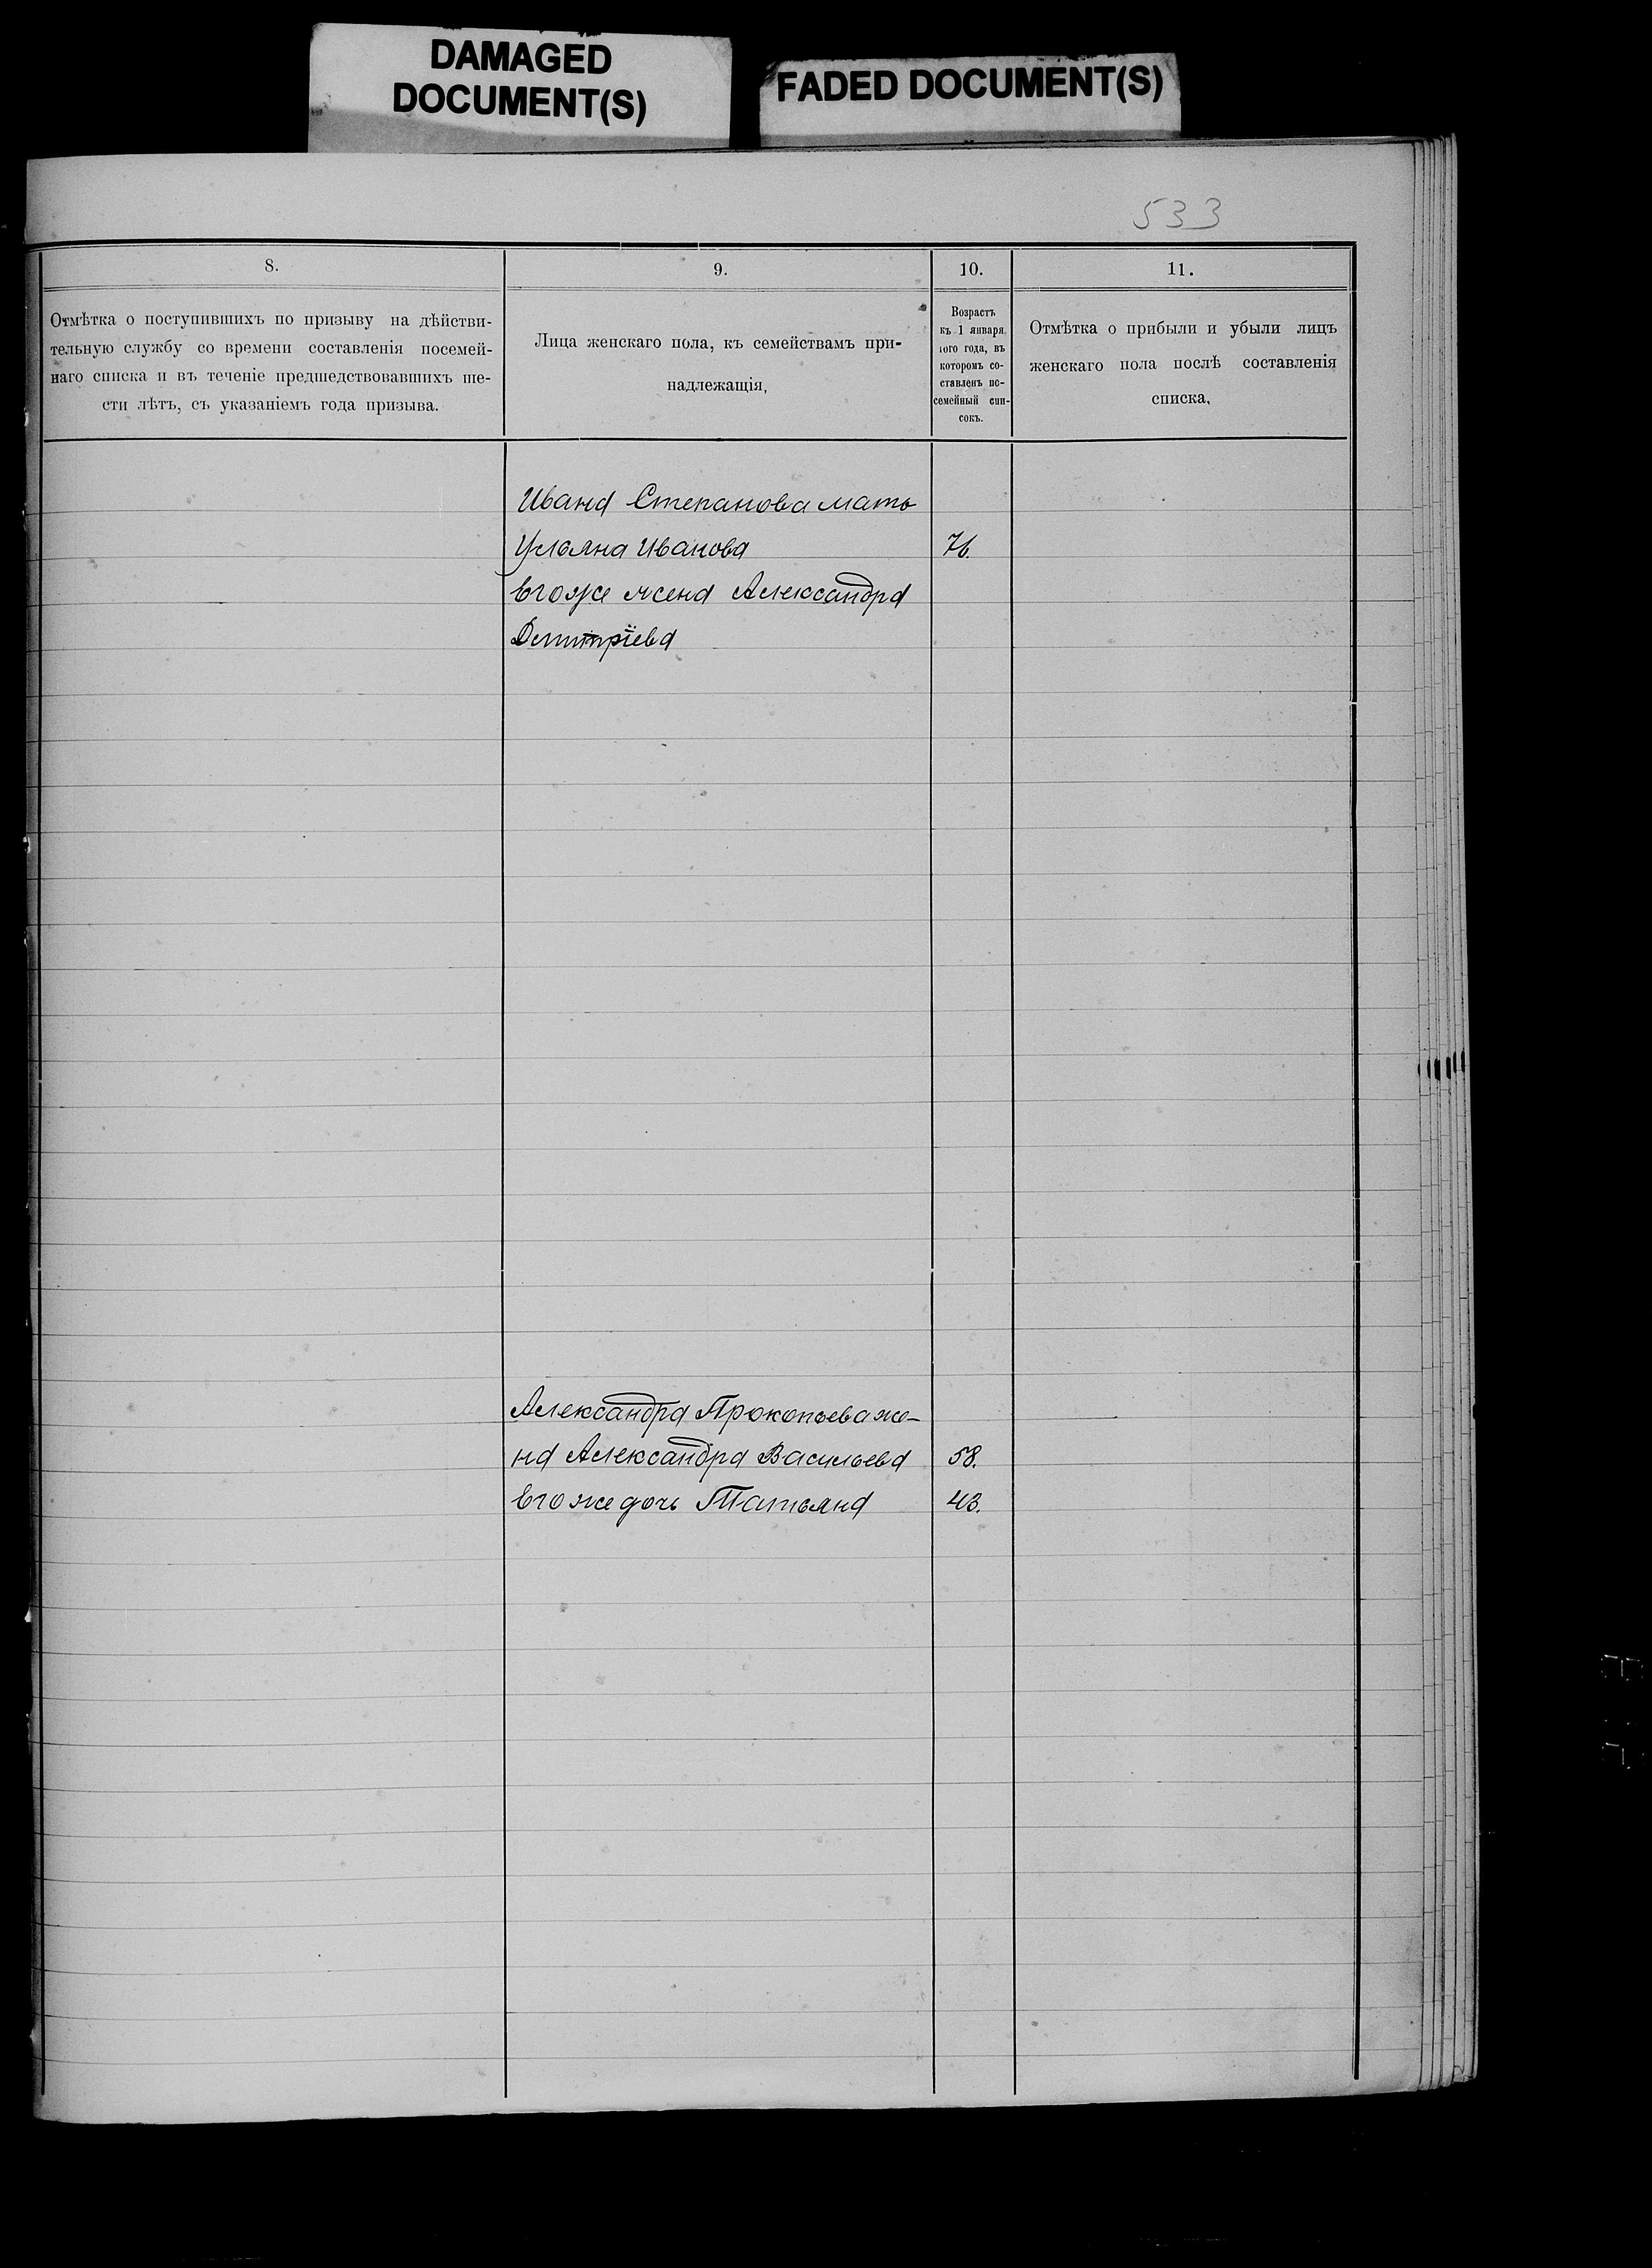 DAMAGED
DOCUMENT(S)
FADED DOCUMENT(S)
533
8.
9.
10.
11.
Отмѣтка о поступившихъ по призыву на дѣйстви-
тельную службу со времени составленія посемей-
наго списка и въ теченіе предшедствовавшихъ ше-
сти лѣтъ, съ указаніемъ года призыва.
Лица женскаго пола, къ семействамъ при-
надлежащія,
Возрастъ
къ 1 января
того года, въ
которомъ со-
ставленъ по-
семейный спи-
сокъ.
Отмѣтка о прибыли и убыли лицъ
женскаго пола послѣ составленія
списка,
Ивана Степанова мать
Ульяна Иванова 76.
Его же жена Александра
Дмитріева
Александра Прокопьева же-
на Александра Васильева 58.
Его же дочь Татьяна 43.